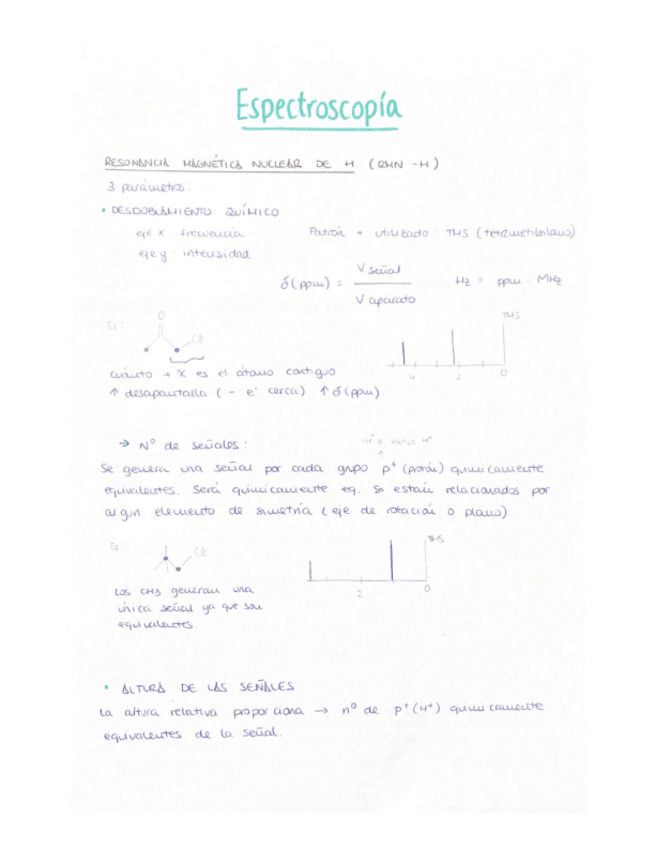 Espectroscopía
RESONANCIA MAGNÉTICA NUCLEAR DE H (RMN -H)
3 parámetros:
• DESDOBLAMIENTO QUÍMICO
eje x frecuencia
Patrón + utilizado: TMS (tetrametilsilano)
eje y: intensidad
δ(ppm) = V señal / V aparato
Hz = ppm · MHz
Ej:
O
Cl
TMS
4 2 0
cuánto + X es el átomo contiguo
↑ desapantalla ( - e⁻ cerca) ↑ δ(ppm)
→ Nº de señales:
o varios H⁺
Se genera una señal por cada grupo p⁺ (protón) químicamente
equivalentes. Será químicamente eq. si están relacionados por
algún elemento de simetría (eje de rotación o plano).
Ej:
Cl
TMS
2 0
Los CH3 generan una
única señal ya que son
equivalentes.
• ALTURA DE LAS SEÑALES
La altura relativa proporciona → nº de p⁺ (H⁺) químicamente
equivalentes de la señal.